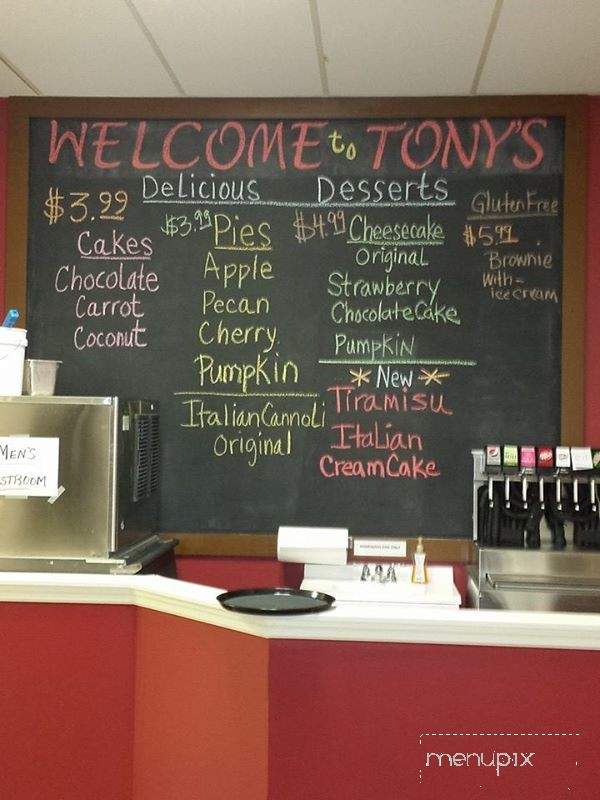 WELCOME to TONY'S
Delicious Desserts
$3.99
Cakes
Chocolate
Carrot
Coconut
$3.99 Pies
Apple
Pecan
Cherry
Pumpkin
Italian Cannoli
Original
$4.99 Cheesecake
Original
Strawberry
Chocolate Cake
Pumpkin
* New *
Tiramisu
Italian
Cream Cake
Gluten Free
$5.99
Brownie
with-
ice cream
MEN'S
STROOM
menupix